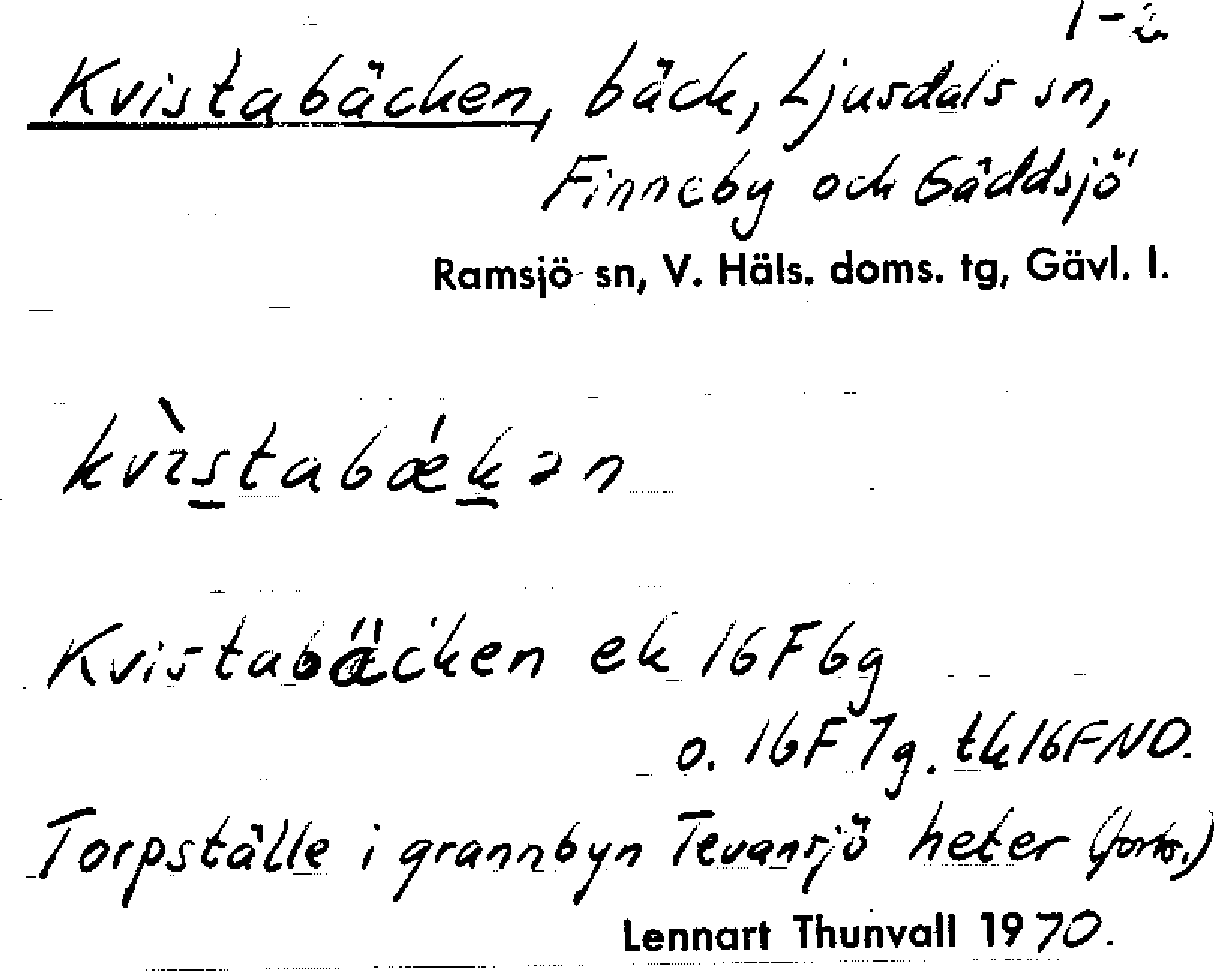 1-2
Kvistabäcken, bäck, Ljusdals sn,
Finneby och Gäddsjö
Ramsjö sn, V. Häls. doms. tg, Gävl. l.
kvìstabǽkən
Kvistabäcken ek 16F6g
o. 16F7g. tk16FNO.
Torpställe i grannbyn Tevansjö heter (forts.)
Lennart Thunvall 1970.